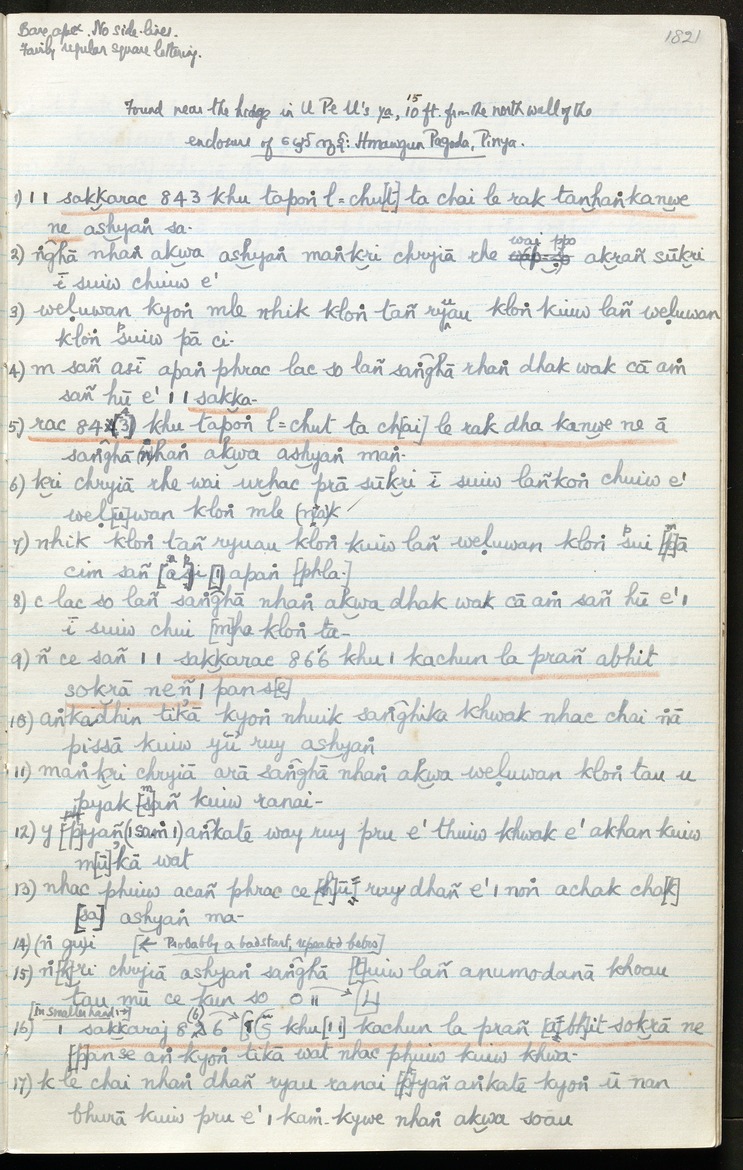 Bare apex. No side-lines.
Fairly regular square lettering.
1821
Found near the hedge in U Pe U's ya, 15 10 ft. from the north wall of the
enclosure of Hmawgun Pagoda, Pinya.
1) 11 sakkarac 843 khu tapoṅ l=chu[t] ta chai le rak tanhaṅkanwe
ne ashyaṅ sa-
2) ṅghā nhaṅ akwa ashyaṅ maṅkri chryiā rhe wai ppo akrañ sūkri
ī suiw chuiw e'
3) weḷuwan kyoṅ mle nhik kloṅ tañ ryuau kloṅ kuiw lañ weḷuwan
kloṅ suiw pā ci-
4) m sañ asī apaṅ phrac lac so lañ saṅghā rhaṅ dhak wak cā aṁ
sañ hū e' 11 sakka-
5) rac 84(3) khu tapoṅ l=chut ta ch[ai] le rak dha kanwe ne ā
saṅghā nhaṅ akwa ashyaṅ maṅ-
6) kri chryiā rhe wai urhac prā sūkri ī suiw lañkoṅ chuiw e'
weḷ[u]wan kloṅ mle
7) nhik kloṅ tañ ryuau kloṅ kuiw lañ weḷuwan kloṅ sui [p]ā
cim sañ apaṅ [phla-]
8) c lac so lañ saṅghā nhaṅ akwa dhak wak cā aṁ sañ hū e' 1
ī suiw chui [m]ha kloṅ ta-
9) ñ ce sañ 11 sakkarac 866 khu 1 kachun la prañ abhit
sokrā ne ñ 1 pan s[e]
10) aṅkadhin tikā kyoṅ nhuik saṅghika khwak nhac chai ṅā
pissā kuiw yū ruy ashyaṅ
11) maṅkri chryiā arā saṅghā nhaṅ akwa weḷuwan kloṅ tau u
pyak [s]añ kuiw ranai-
12) y [p]yañ (1 sam 1) aṅkate way ruy pru e' thuiw khwak e' akhan kuiw
m[ū]kā wat
13) nhac phuiw acañ phrac ce [h]ū ruy dhañ e' 1 noṅ achak cha[k]
[sa] ashyaṅ ma-
14) (ṅ gu)i [← Probably a bad start, repeated below]
15) ṅ[k]ri chryiā ashyaṅ saṅghā [t]uiw lañ anumodanā khoau
tau mū ce kun so 0 11 → [4
[In smaller hand: →]
16) 1 sakkaraj 826 khu [11] kachun la prañ [a]bhit sokrā ne
[p]an se aṅ kyoṅ tikā wat nhac phuiw kuiw khwa-
17) k le chai nhaṅ dhañ ryau ranai [p]yañ aṅkate kyoṅ ū nan
bhurā kuiw pru e' 1 kaṁ-kywe nhaṅ akwa soau